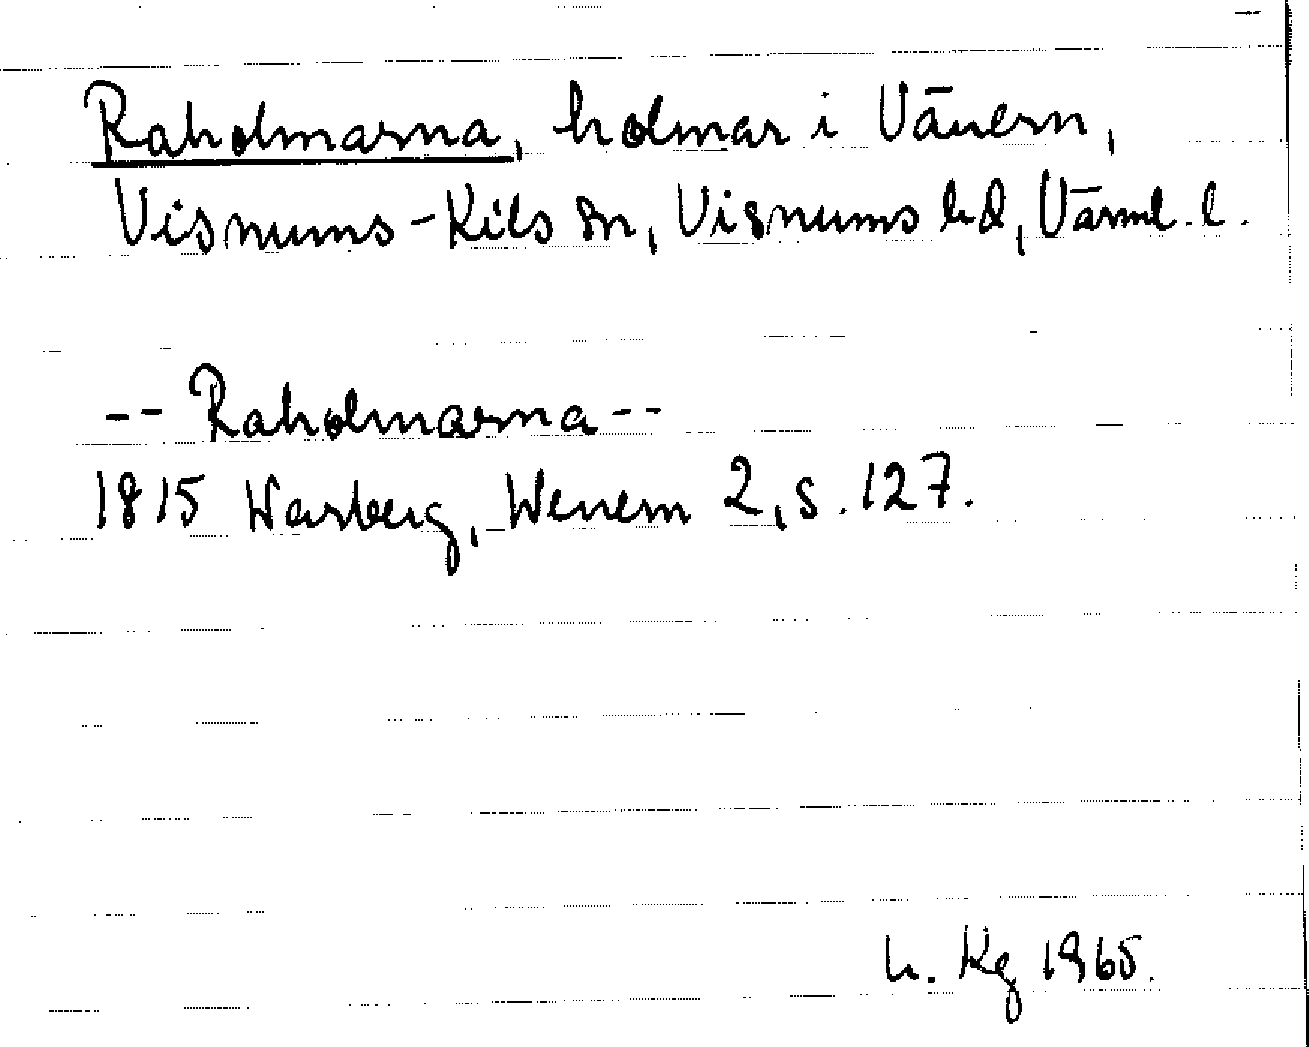 Raholmarna, holmar i Vänern,
Visnums-Kils sn, Visnums hd, Värml. l.
-- Raholmarna --
1815 Warberg, Wenern 2, s. 127.
h. Kg 1965.